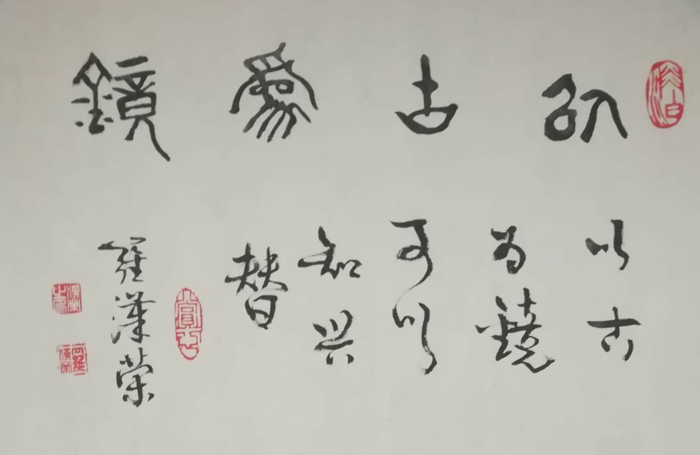 以古為鏡
以古
为鏡
可以
知兴
替
羅漢榮